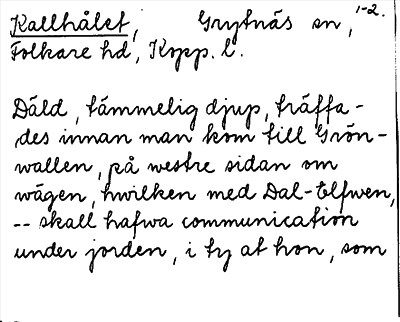 Kallhålet, Grytnäs sn, 1-2.
Folkare hd, Kopp. l.
Däld, tämmelig djup, träffa-
des innan man kom till Grön-
wallen, på westre sidan om
wägen, hwilken med Dal-Elfwen,
-- skall hafwa communication
under jorden, i ty at hon, som